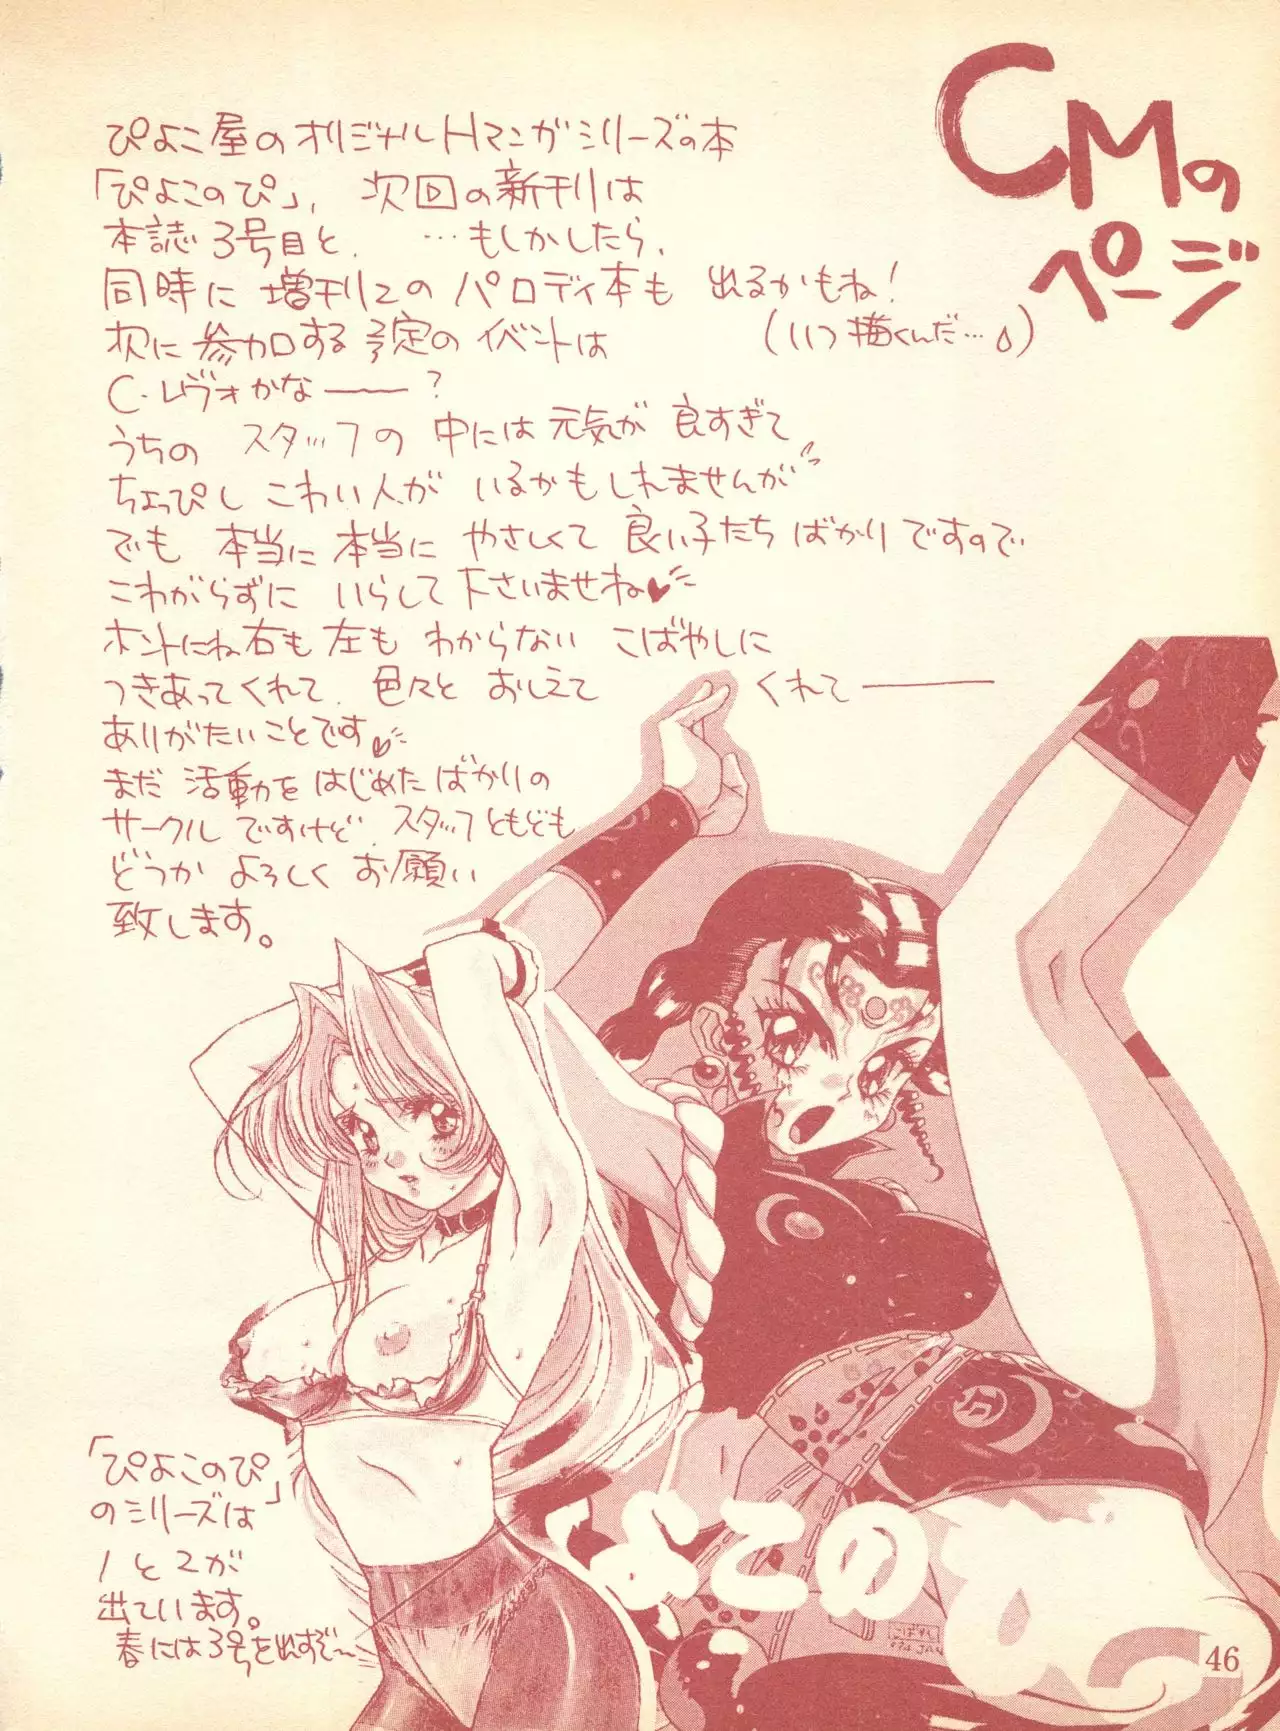 CMの
ページ
ぴよこ屋のオリジナルHマンガシリーズの本
「ぴよこのぴ」、次回の新刊は
本誌3号目と、…もしかしたら、
同時に増刊2のパロディ本も出るかもね!
(いつ描くんだ…)
次に参加する予定のイベントは
C・レヴォかなー?
うちのスタッフの中には元気が良すぎて
ちょっぴしこわい人がいるかもしれませんが
でも本当に本当にやさしくて良い子たちばかりですので
こわがらずにいらして下さいませね♥
ホントにね右も左もわからないこばやしに
つきあってくれて、色々とおしえてくれて――
ありがたいことです♥
まだ活動をはじめたばかりの
サークルですけど、スタッフともども
どうかよろしくお願い
致します。
「ぴよこのぴ」
のシリーズは
1と2が
出ています。
春には3号を出すぞ〜
よこの
46